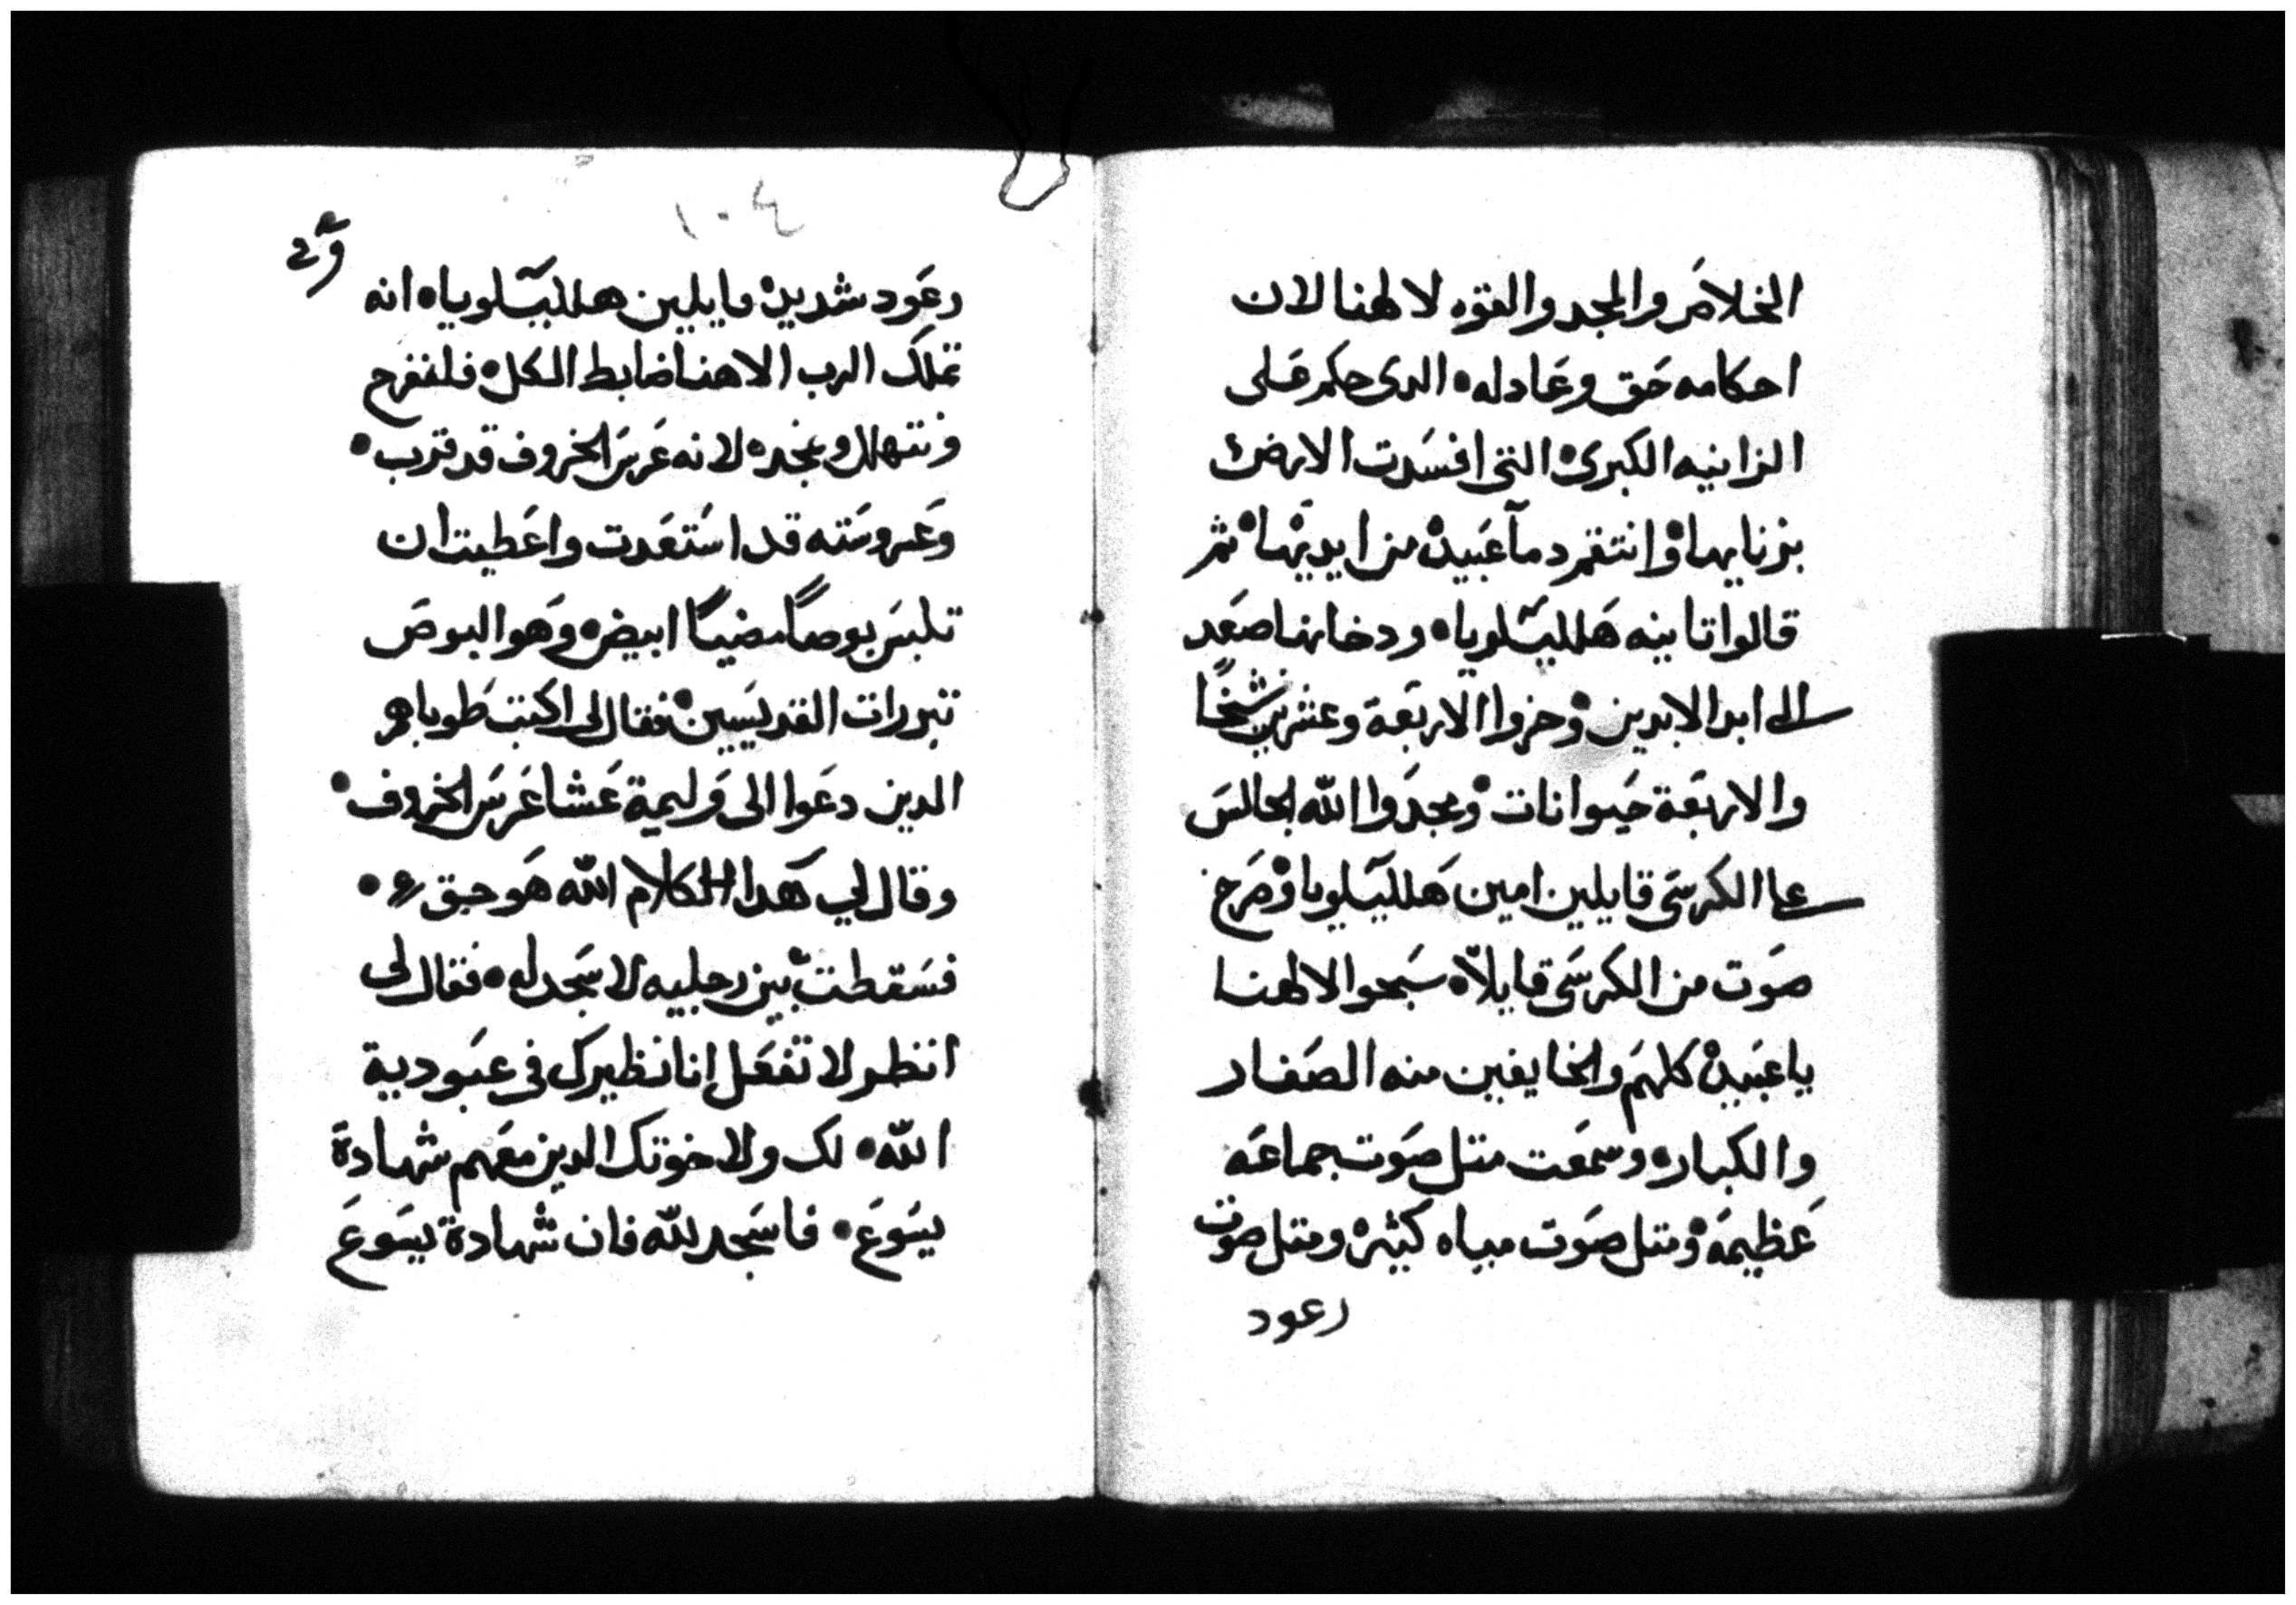 الخلاص والمجد والقوه لالهنا لان
احكامه حق وعادله • الدى حكم على
الزانيه الكبرى • التى افسدت الارض
بزنايها • وانتقم دمآ عبيده من ايديها • ثم
قالوا تانيه هللـيـلويا • ودخانها صعد
الى ابد الابدين • وخروا الاربعة وعشرين شيخًا
والاربعة حيوانات • ومجدوا الله الجالس
على الكرسى قايلين امين هللـيـلويا • وخرج
صوت من الكرسى قايلاً • سبحوا لالهنا
يا عبيده كلهم والخايفين منه الصغار
والكبار • وسمعت متل صوت جماعه
عظيمه • ومتل صوت مياه كثيره ومتل صوت
رعود
١٠٤
رعود شديده قايلين هللـيـلويا • انه
تملك الرب الاهنا ضابط الكل • فلنفرح
ونتهلل ونمجده لانه عرس الخروف قد قترب •
وعروسته قد استعدت واعطيت ان
تلبس بوصاً مضياً ابيض • وهو البوص
تبررات القديسين • فقال لى اكتب طوباهم
الدين دعوا الى وليمة عشا عرس الخروف •
وقال لي هدا الكلام الله هو حق •
فسقطت بين رجليه لاسجد له • فقال لى
انظر لا تفعل انا نظيرك فى عبودية
الله • لك ولاخوتك الدين معهم شهادة
يسوع • فاسجد لله فان شهادة يسوع